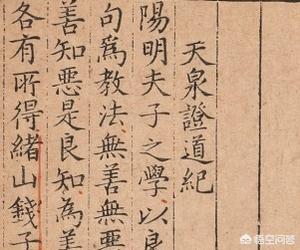 天泉證道紀
陽明夫子之學以良
句爲教法無善無惡
善知惡是良知為善
各有所得緒山錢子
悟空问答